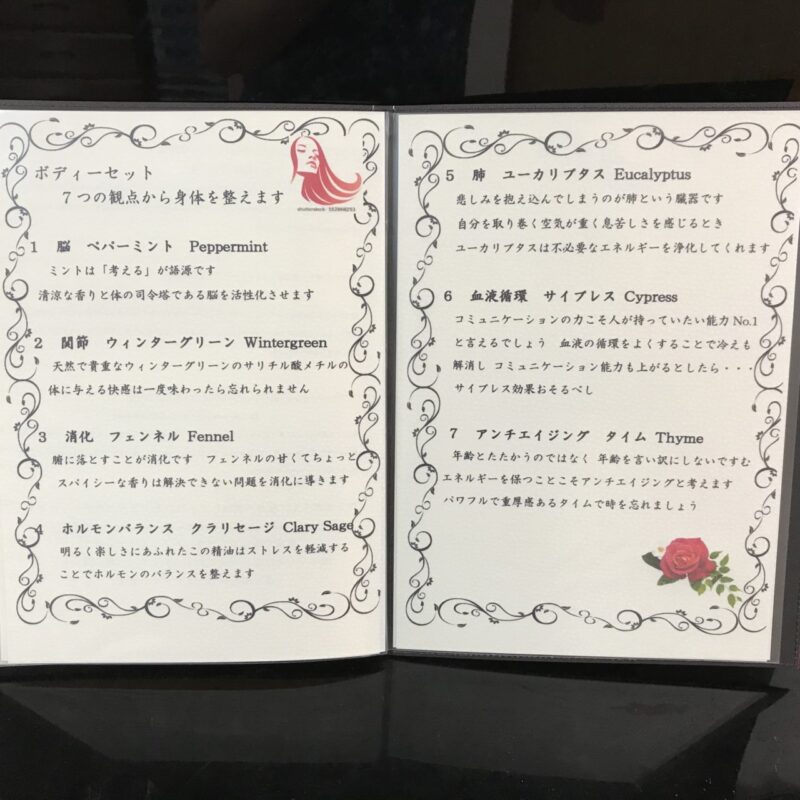 ボディーセット
７つの観点から身体を整えます
1 脳 ペパーミント Peppermint
ミントは「考える」が語源です
清涼な香りと体の司令塔である脳を活性化させます
2 関節 ウィンターグリーン Wintergreen
天然で貴重なウィンターグリーンのサリチル酸メチルの
体に与える快感は一度味わったら忘れられません
3 消化 フェンネル Fennel
腑に落とすことが消化です フェンネルの甘くてちょっと
スパイシーな香りは解決できない問題を消化に導きます
4 ホルモンバランス クラリセージ Clary Sage
明るく楽しさにあふれたこの精油はストレスを軽減する
ことでホルモンのバランスを整えます
5 肺 ユーカリプタス Eucalyptus
悲しみを抱え込んでしまうのが肺という臓器です
自分を取り巻く空気が重く息苦しさを感じるとき
ユーカリプタスは不必要なエネルギーを浄化してくれます
6 血液循環 サイプレス Cypress
コミュニケーションの力こそ人が持っていたい能力 No.1
と言えるでしょう 血液の循環をよくすることで冷えも
解消し コミュニケーション能力も上がるとしたら・・・
サイプレス効果おそるべし
7 アンチエイジング タイム Thyme
年齢とたたかうのではなく 年齢を言い訳にしないですむ
エネルギーを保つことこそアンチエイジングと考えます
パワフルで重厚感あるタイムで時を忘れましょう